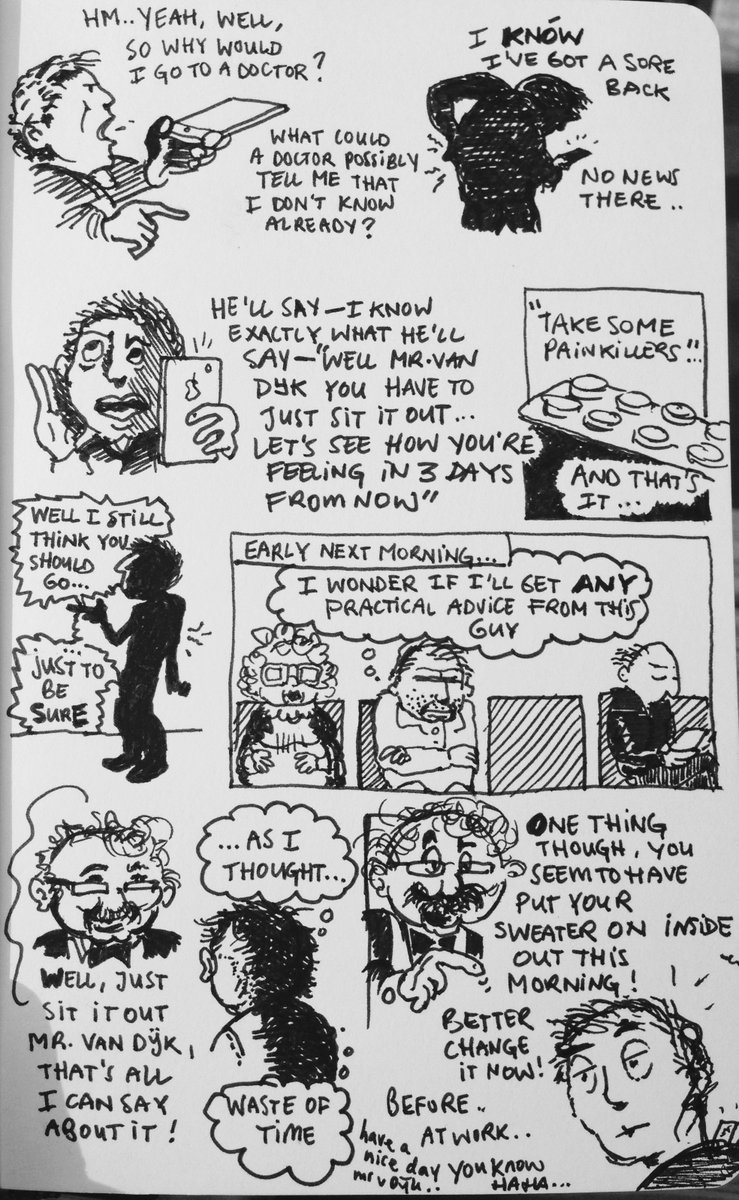 HM..YEAH, WELL,
SO WHY WOULD
I GO TO A DOCTOR?
WHAT COULD
A DOCTOR POSSIBLY
TELL ME THAT
I DON'T KNOW
ALREADY?
I KNÓW
I'VE GOT A SORE
BACK
NO NEWS
THERE..
HE'LL SAY—I KNOW
EXACTLY WHAT HE'LL
SAY—"WELL MR. VAN
DIJK YOU HAVE TO
JUST SIT IT OUT...
LET'S SEE HOW YOU'RE
FEELING IN 3 DAYS
FROM NOW"
"TAKE SOME
PAINKILLERS"...
AND THAT'S
IT...
WELL I STILL
THINK YOU
SHOULD
GO...
...
JUST TO
BE
SURE
EARLY NEXT MORNING...
I WONDER IF I'LL GET ANY
PRACTICAL ADVICE FROM THIS
GUY
WELL, JUST
SIT IT OUT
MR. VAN DIJK,
THAT'S ALL
I CAN SAY
ABOUT IT!
...AS I
THOUGHT...
WASTE OF
TIME
ONE THING
THOUGH, YOU
SEEM TO HAVE
PUT YOUR
SWEATER ON INSIDE
OUT THIS
MORNING!
BETTER
CHANGE
IT NOW!
BEFORE..
AT WORK..
YOU KNOW
HAHA...
have a
nice day
mr v Dijk..